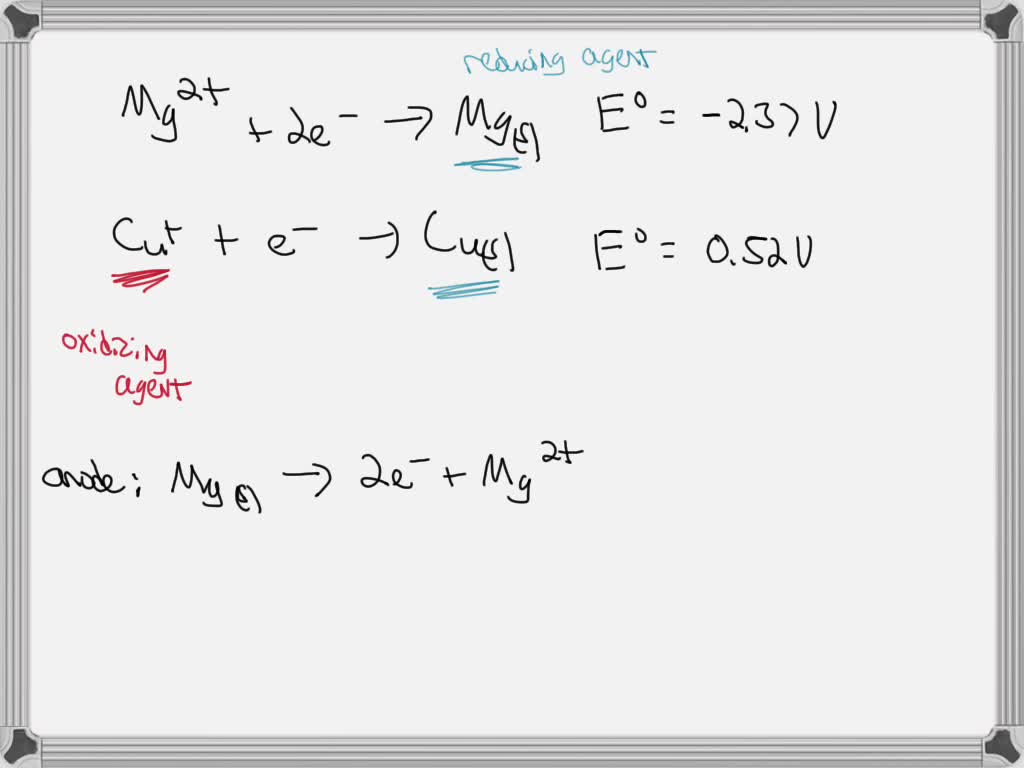 reducing agent
Mg²⁺ + 2e⁻ → Mg(s) E⁰ = -2.37 V
Cu⁺ + e⁻ → Cu(s) E⁰ = 0.52 V
oxidizing
agent
anode: Mg(s) → 2e⁻ + Mg²⁺